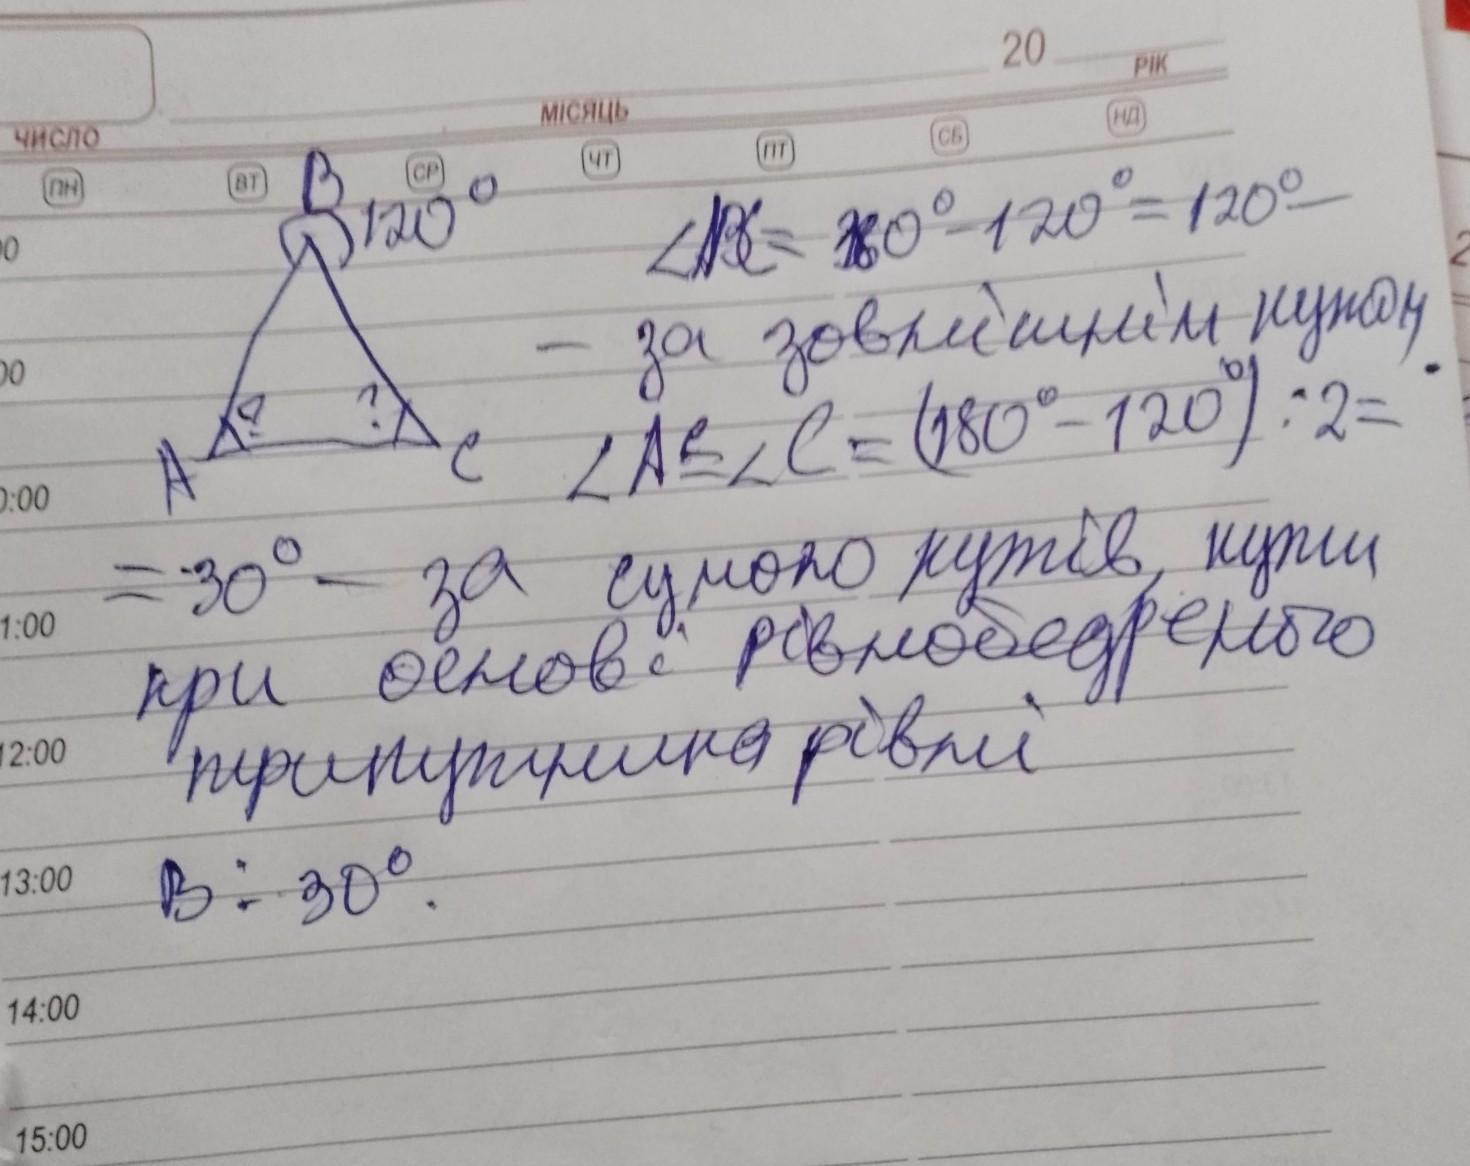 20 РІК
МІСЯЦЬ
ЧИСЛО
ПН ВТ СР ЧТ ПТ СБ НД
B
120°
= 180° - 120° = 120° -
- за зовнішнім кутом.
A ? ? C
∠A = ∠C = (180° - 120°) : 2 =
= 30° - за сумою кутів, кути
при основі рівнобедреного
трикутника рівні
В: 30°.
0:00
1:00
12:00
13:00
14:00
15:00